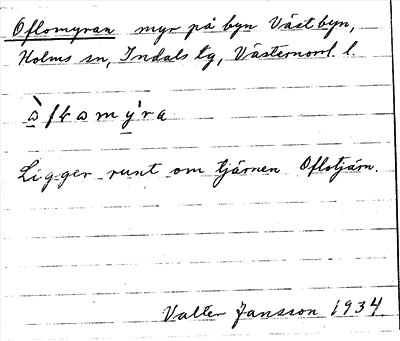 Oflomyran myr på byn Västbyn,
Holms sn, Indals tg, Västernorrl. l.
Ligger runt om tjärnen Oflotjärn.
Valter Jansson 1934.